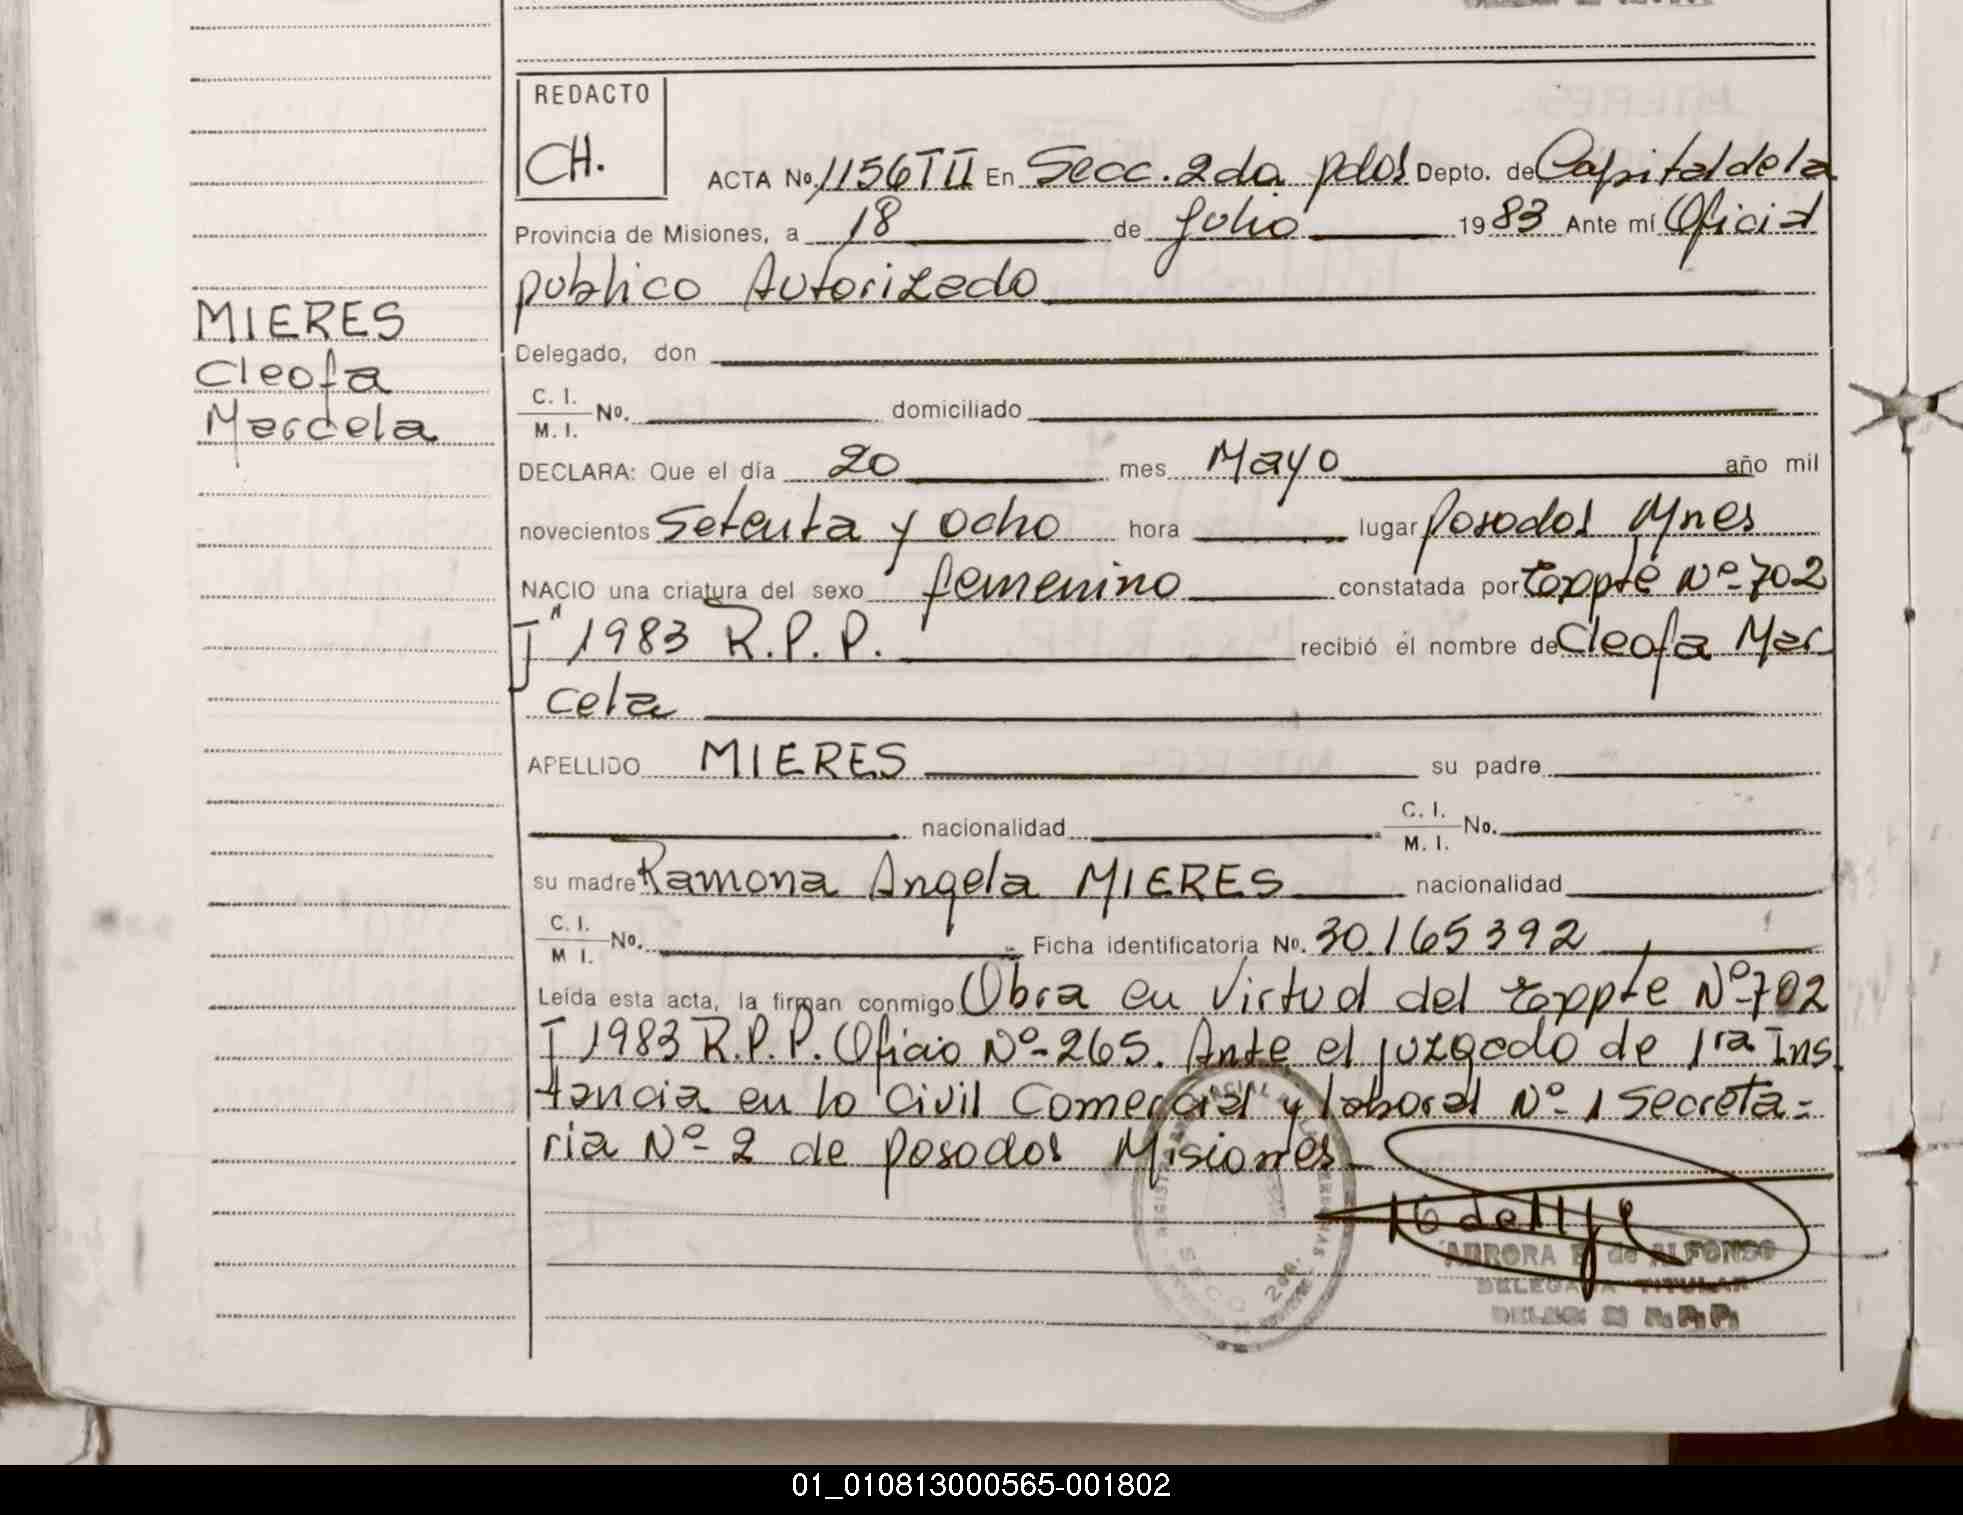 REDACTO
CH.
ACTA Nº. 1156 T II En Secc. 2da. pdas Depto. de Capital de la
Provincia de Misiones, a 18 de Julio 1983 Ante mí Oficial
publico Autorizado
MIERES
Cleofa
Marcela
Delegado, don
C. I.
M. I. Nº. domiciliado
DECLARA: Que el día 20 mes Mayo año mil
novecientos Setenta y ocho hora lugar posadas Mnes
NACIO una criatura del sexo femenino constatada por Exppte Nº-702
"J" 1983 R.P.P. recibió el nombre de Cleofa Mar
cela
APELLIDO MIERES su padre
nacionalidad C. I.
M. I. No.
su madre Ramona Angela MIERES nacionalidad
C. I.
M I. Nº. Ficha identificatoria Nº. 30.165392
Leída esta acta, la firman conmigo Obra en virtud del Exppte Nº-702
J 1983 R.P.P. Oficio Nº-265. Ante el juzgado de 1ra Ins
tancia en lo Civil Comercial y laboral Nº-1 Secreta=
ria Nº-2 de posadas Misiones
SECC 2da.
AURORA E de ALFONSO
DELEGADA TITULAR
01_010813000565-001802